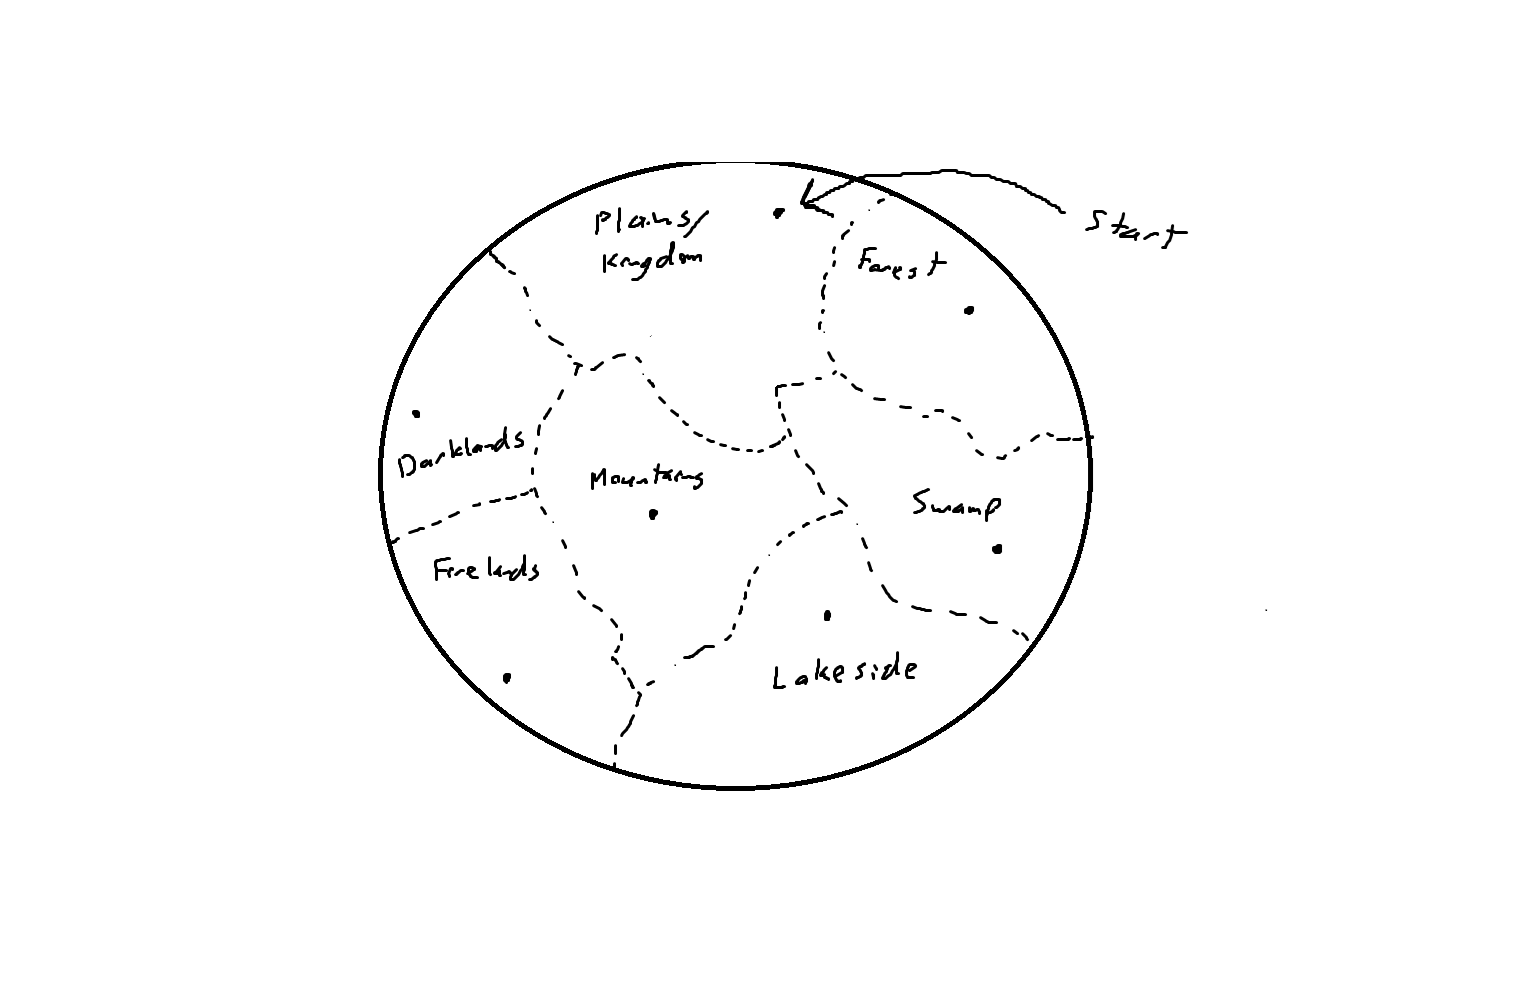 Plains/
Kingdom
Start
Forest
Darklands
Mountains
Swamp
Firelands
Lakeside